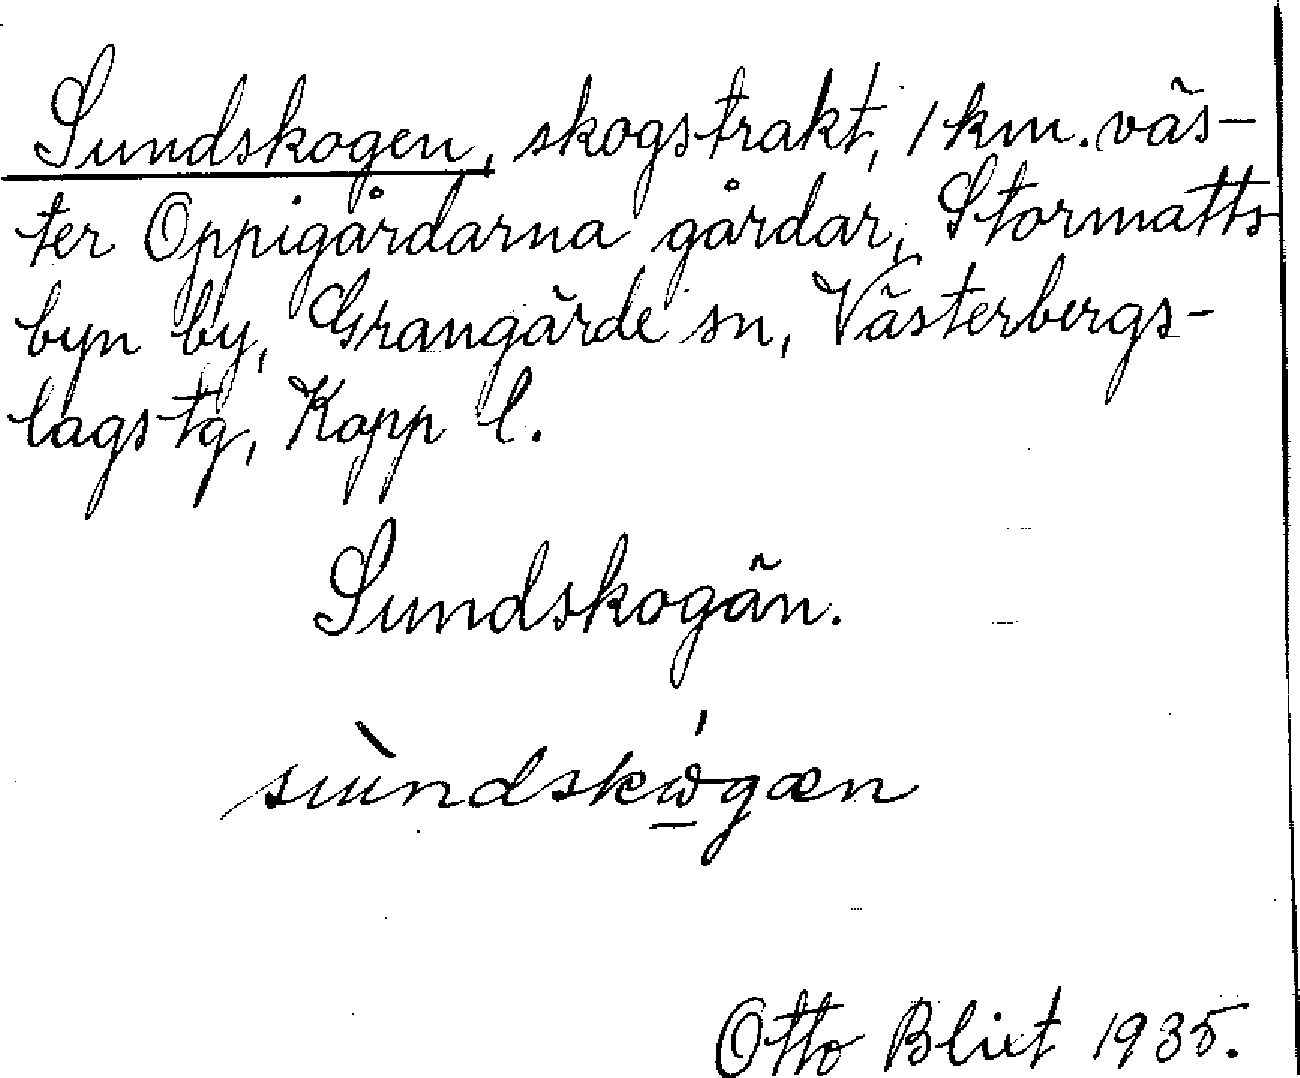 Sundskogen, skogstrakt, 1 km. väs-
ter Oppigårdarna gårdar, Stormatts-
byn by, Grangärde sn, Västerbergs-
lags tg, Kopp l.
Sundskogän.
Otto Blixt 1935.